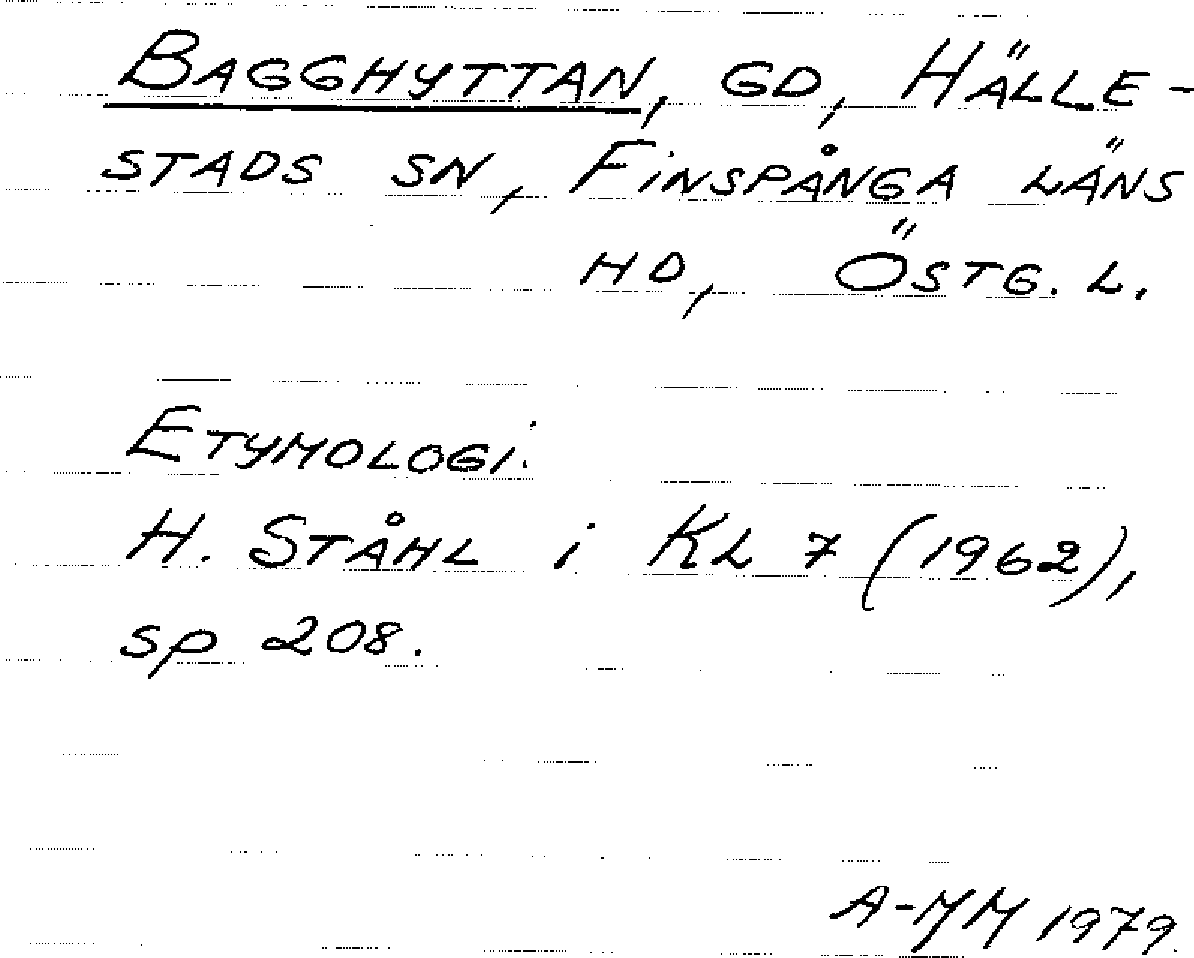 BAGGHYTTAN, GD, HÄLLE-
STADS SN, FINSPÅNGA LÄNS
HD, ÖSTG. L.
ETYMOLOGI:
H. STÅHL i KL 7 (1962),
sp 208.
A-MM 1979.